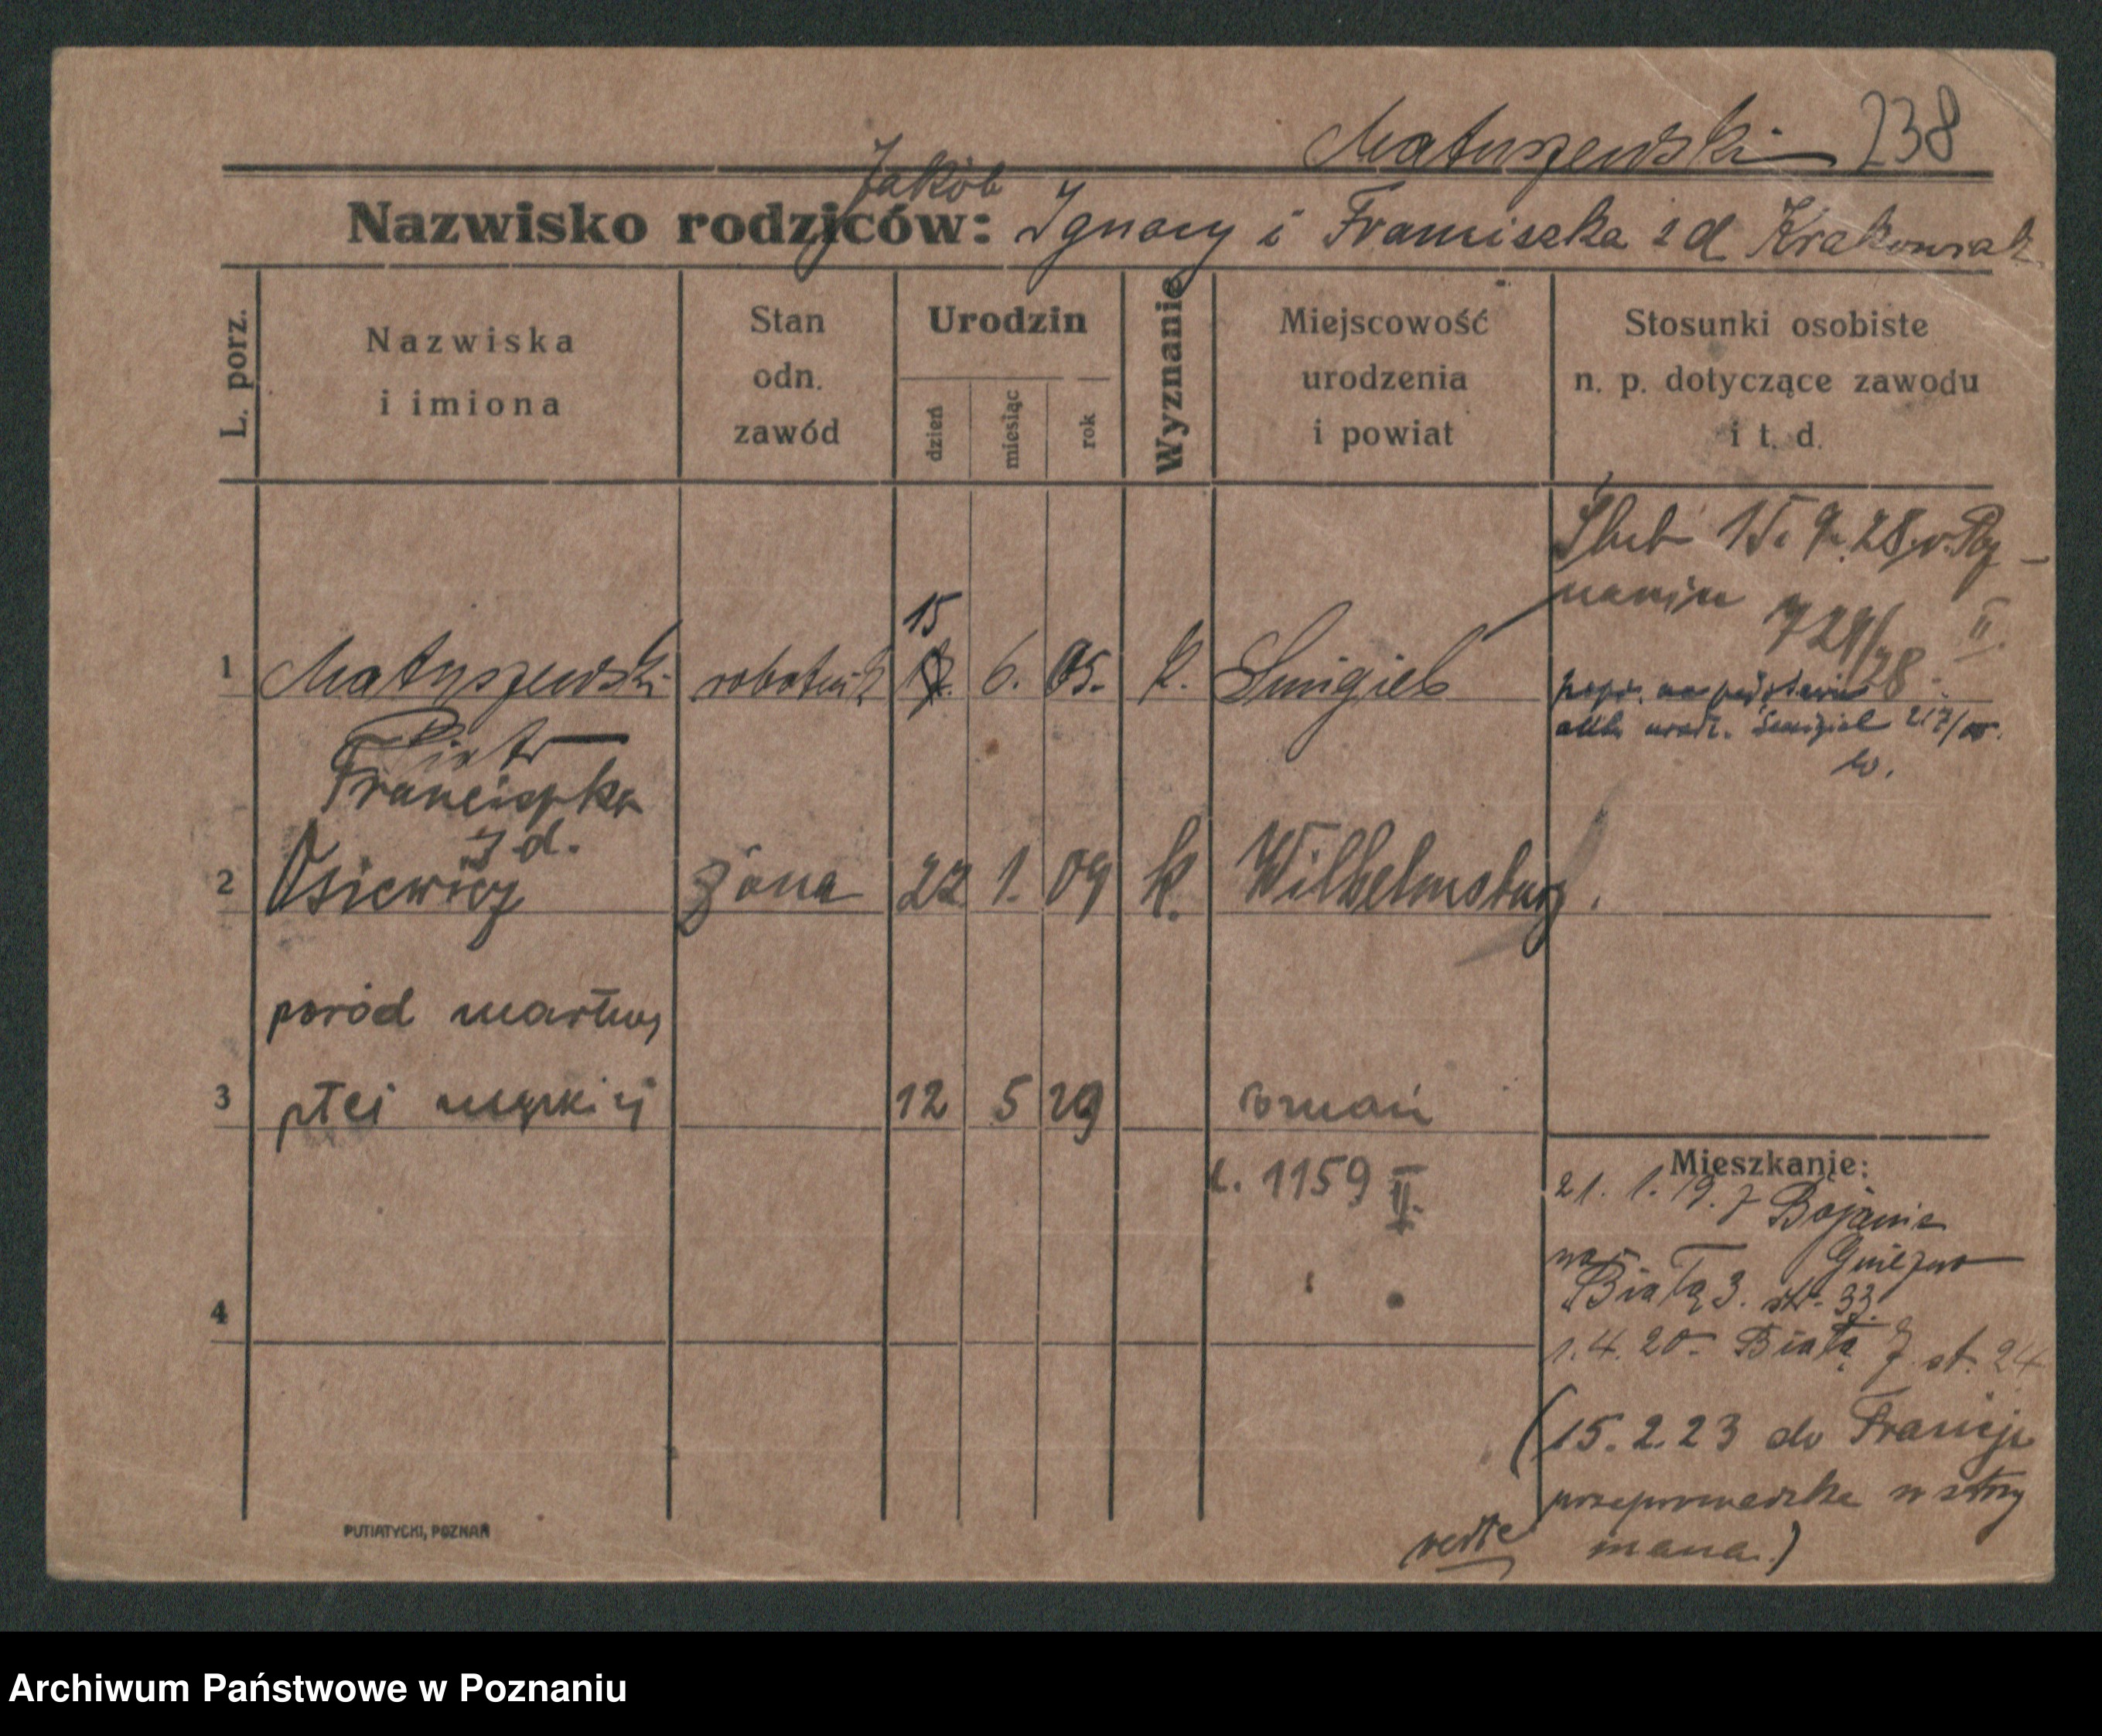 Matuszewski 238
Jakób
Nazwisko rodziców: Ignacy i Franciszka z d Krakowiak
L. porz.
Nazwiska
i imiona
Stan
odn.
zawód
Urodzin
dzień
miesiąc
rok
Wyznanie
Miejscowość
urodzenia
i powiat
Stosunki osobiste
n. p. dotyczące zawodu
i t. d.
Ślub 15. 9. 28. w Poz-
naniu 729/28 II.
15
1 Matuszewski robotnik 6. 05. k. Śmigiel
popr. na podstawie
aktu urodz. Śmigiel 217/05.
Piotr
Franciszka
z d.
2 Osiewicz żona 22 1. 09 k. Wilhelmsburg.
poród martwy
3 płci męskiej 12 5 29 Poznań
L. 1159 II.
Mieszkanie:
21. 1. 19. z Bojanic
Gniezno
na Białą 3. str. 33.
4
1. 4. 20. Białą 7 st. 24
(15. 2. 23 do Francji
przeprowadzka wstrzy
mana.)
verte
PUTIATYCKI, POZNAŃ
Archiwum Państwowe w Poznaniu